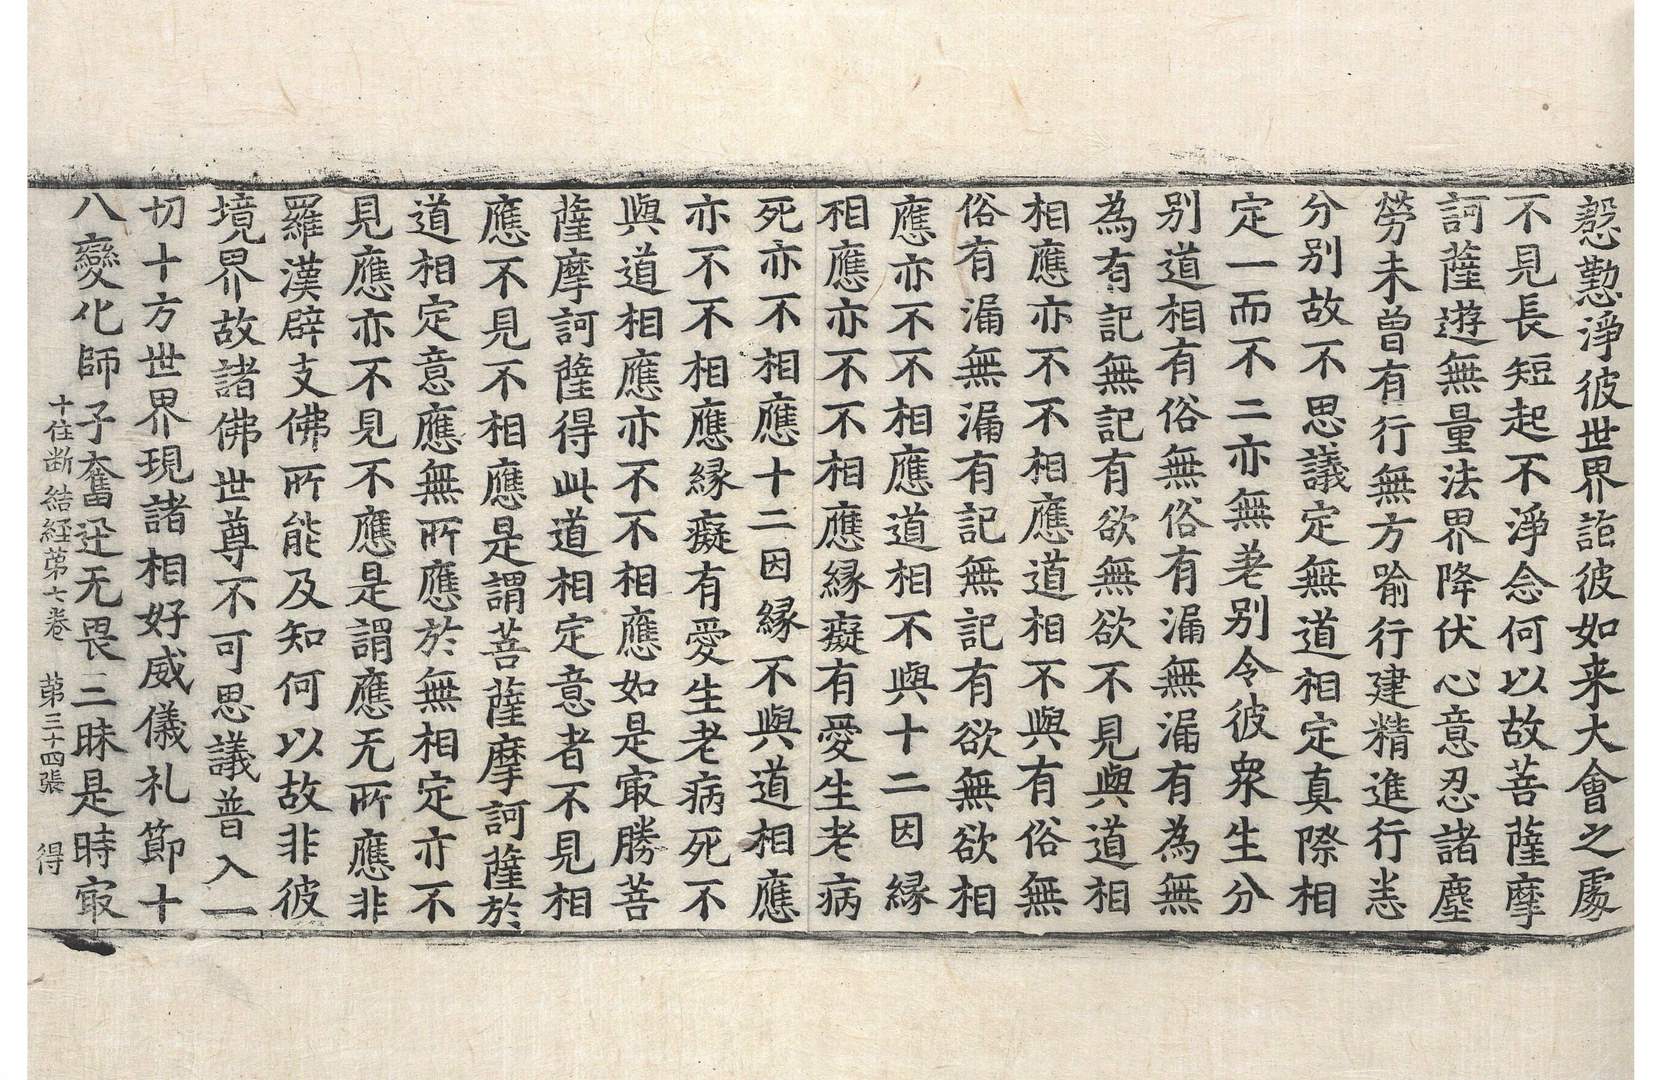 慇懃淨彼世界詣彼如来大會之處
不見長短起不淨念何以故菩薩摩
訶薩遊無量法界降伏心意忍諸塵
勞未曾有行無方喻行建精進行恚
分别故不思議定無道相定真際相
定一而不二亦無差别令彼衆生分
别道相有俗無俗有漏無漏有為無
為有記無記有欲無欲不見與道相
相應亦不不相應道相不與有俗無
俗有漏無漏有記無記有欲無欲相
應亦不不相應道相不與十二因縁
相應亦不不相應縁癡有愛生老病
死亦不相應十二因縁不與道相應
亦不不相應縁癡有愛生老病死不
與道相應亦不不相應如是㝡勝菩
薩摩訶薩得此道相定意者不見相
應不見不相應是謂菩薩摩訶薩於
道相定意應無所應於無相定亦不
見應亦不見不應是謂應无所應非
羅漢辟支佛所能及知何以故非彼
境界故諸佛世尊不可思議普入一
切十方世界現諸相好威儀礼節十
八變化師子奮迅无畏三昧是時㝡
十住断結経苐七卷 苐三十四張 得